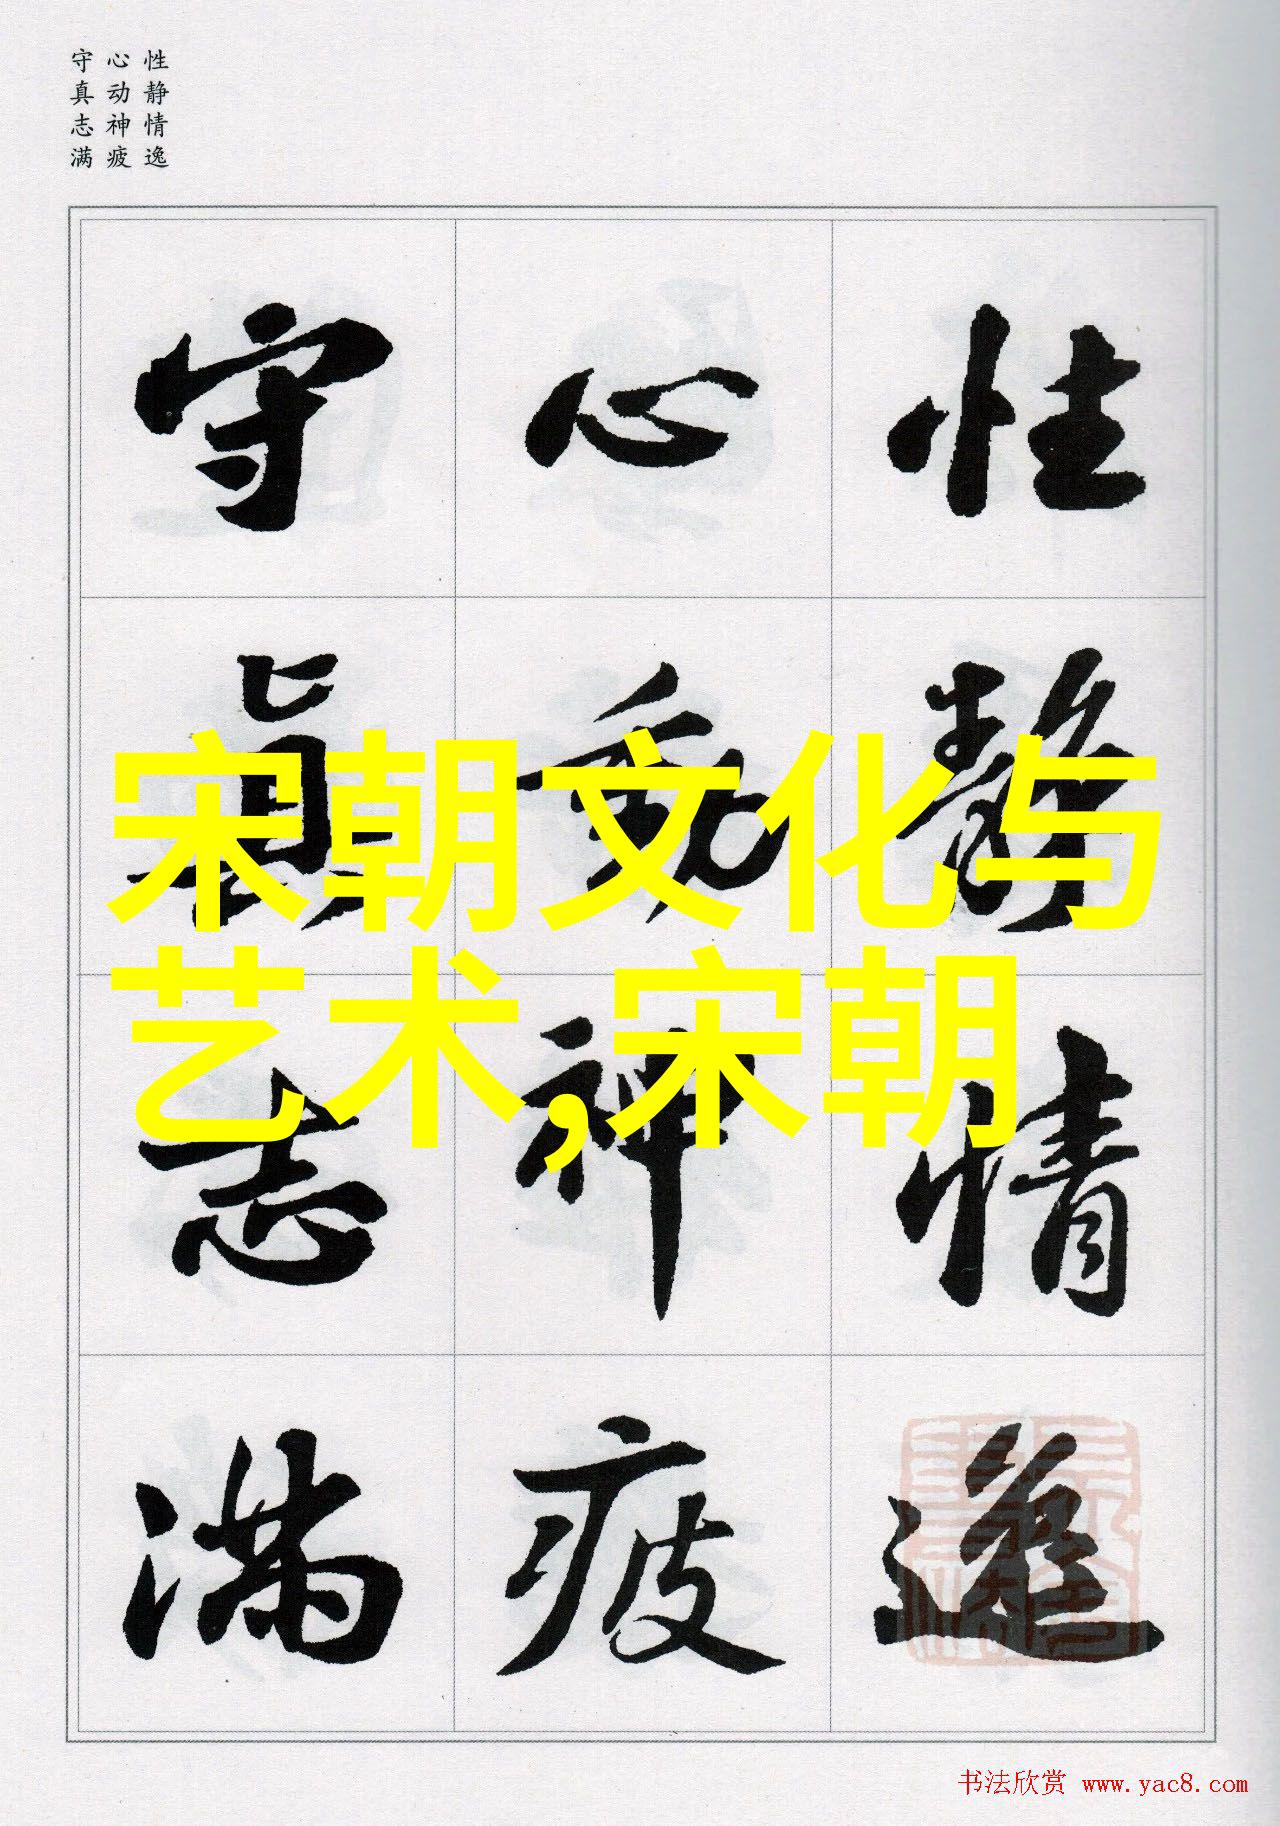 性静情逸
心动神疲
守真志满
性靜情逸
心動神疲
守真志滿
宋朝文化与
艺术,宋朝
书法欣赏 www.yac8.com